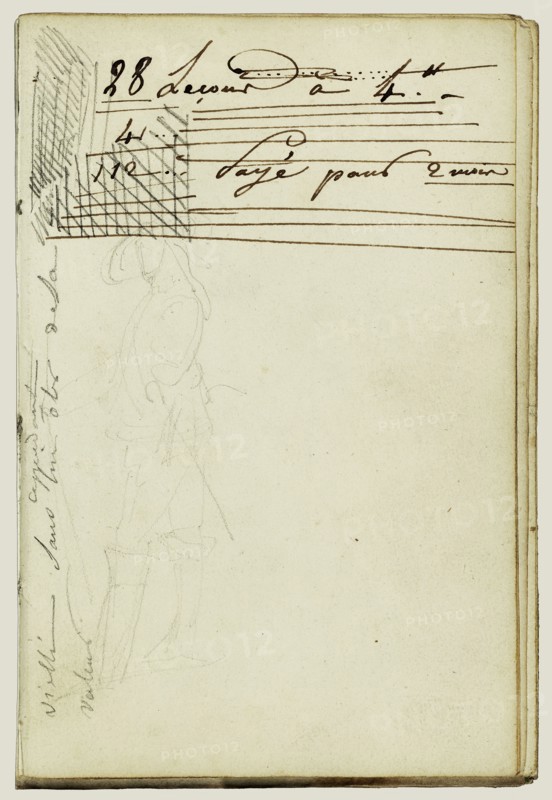 28 Leçons à 4.tt
4..
112... Payé pour 2 mois
viellir sans
cependant
rien ôter de sa
valeur
PHOTO12